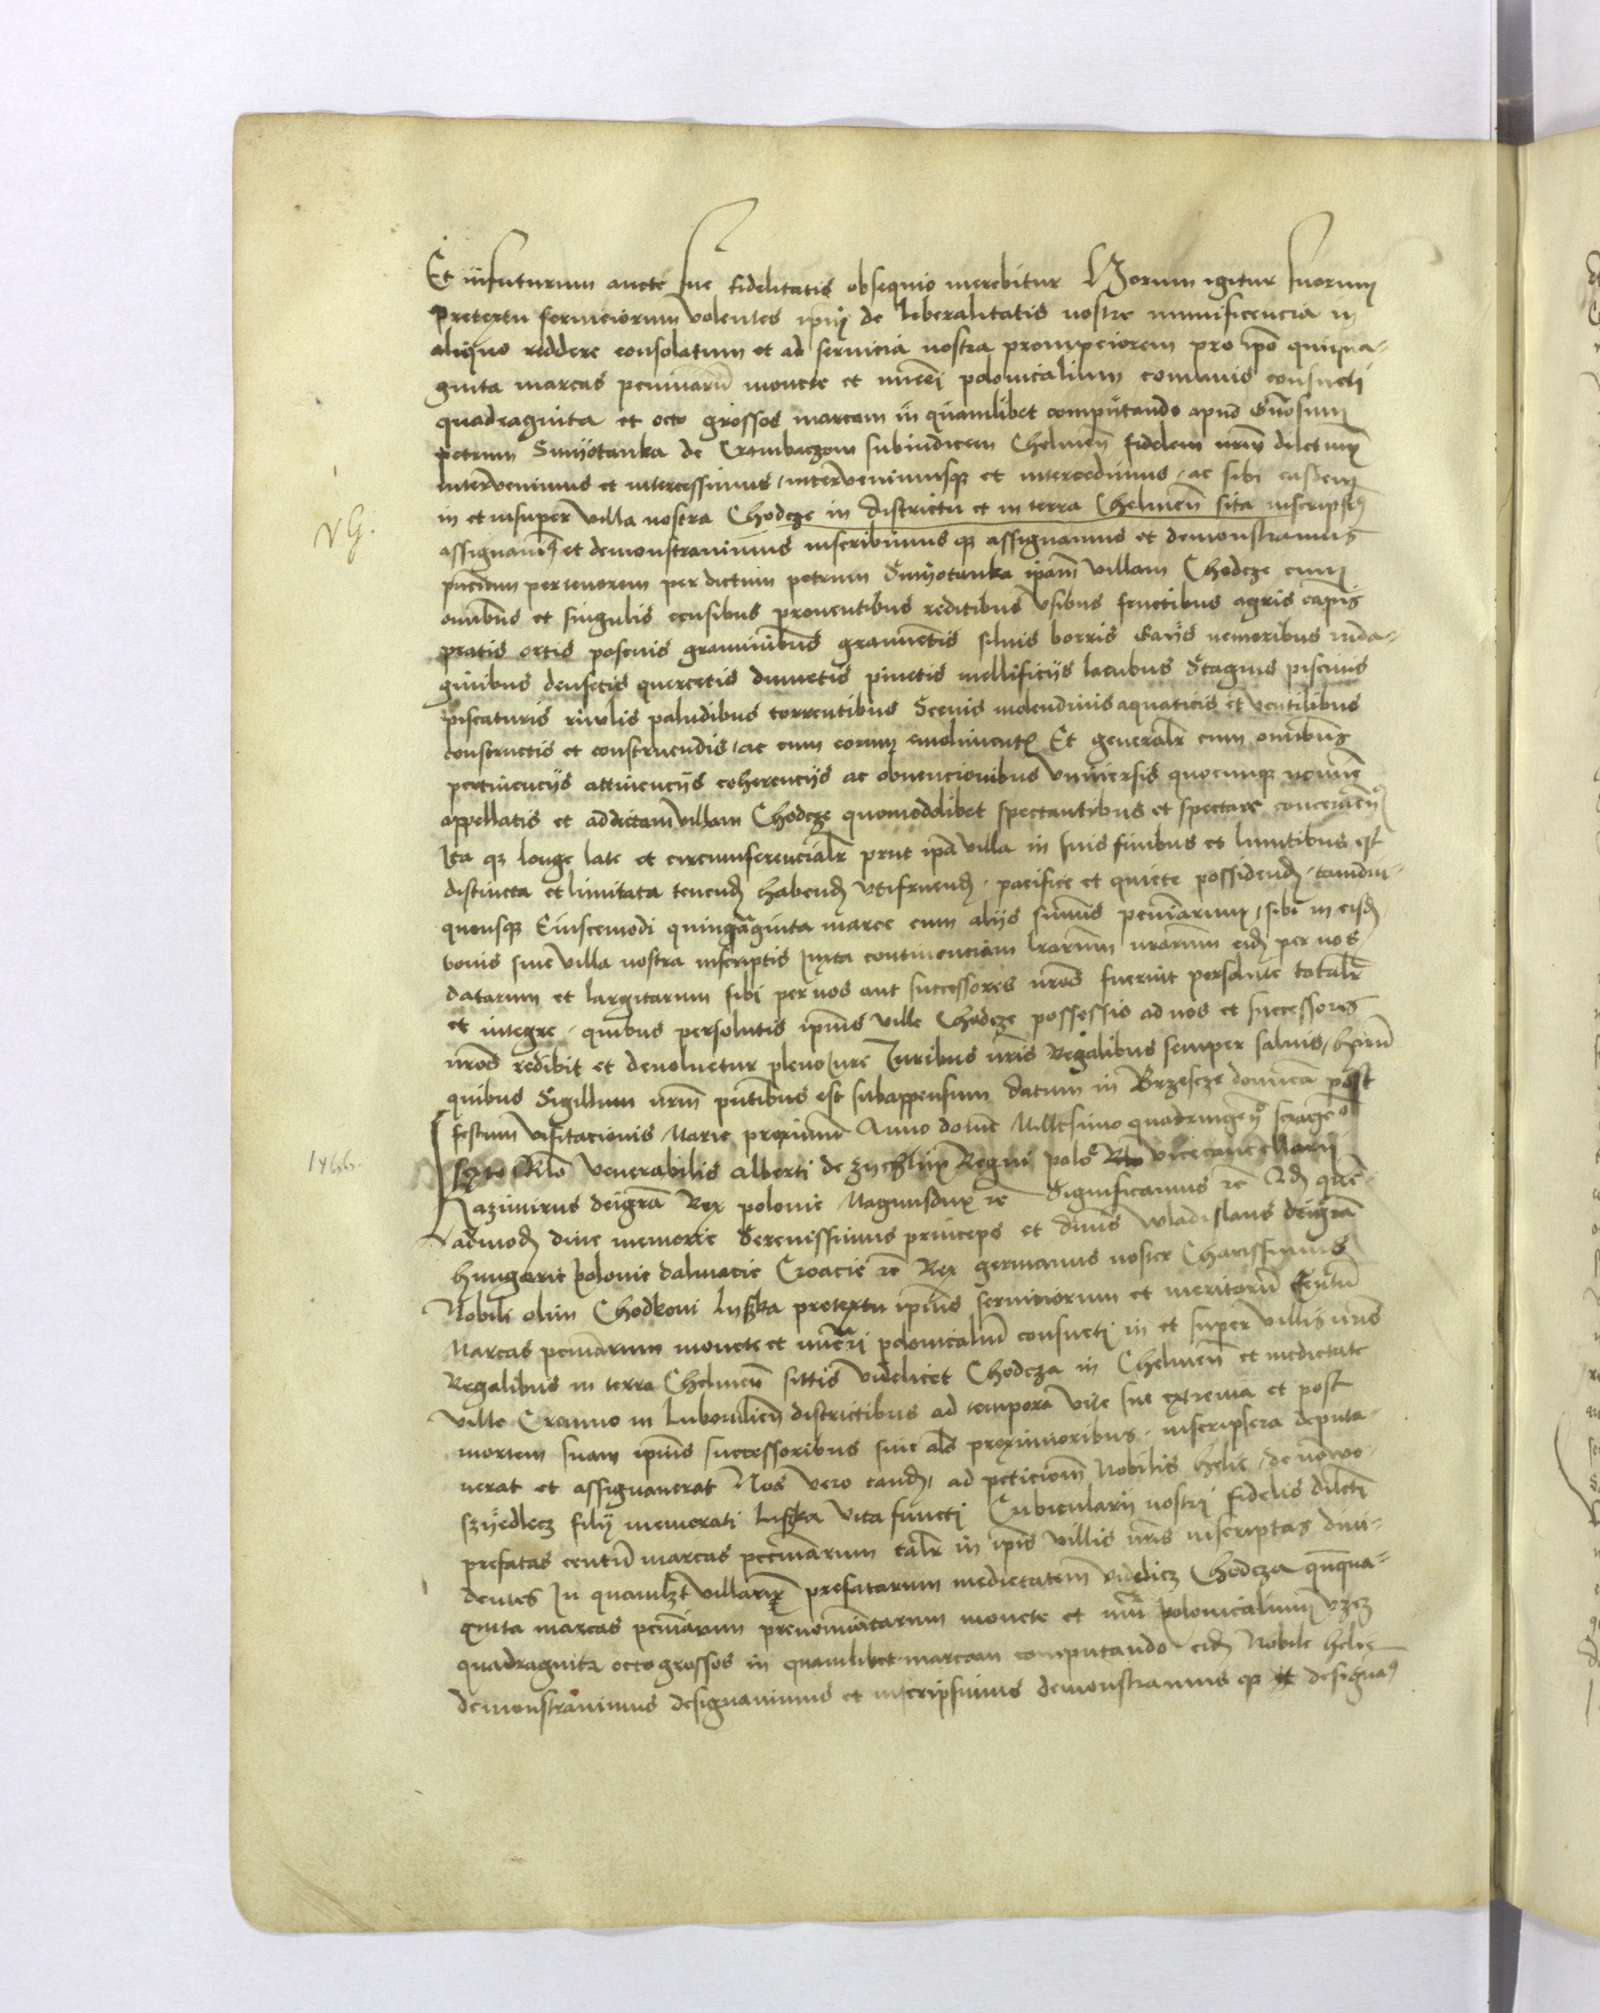 Et infuturum aucte sue fidelitatis obsequio merebitur Horum igitur suorum
pretextu serviciorum volentes ipm de liberalitatis nostre munificencia in
aliquo reddere consolatum et ad servicia nostra prompciorem pro ipo quinqua-
ginta marcas pecuniarū monete et nūeri polonicalium comunis consueti
quadraginta et octo grossos marcam in quamlibet computando apud Gnosum
petrum Smyotanka de subiudicem Chelmeñ fidelem nrm dilectum
intervenimus et intercessimus, intervenimusqz et intercedimus, ac sibi easdem
in et insuper villa nostra Chodcze in districtu et in terra Chelmeñ sita inscripsi
VG.
assignavi et demonstravimus inscribimus qz assignamus et demonstramus
pncium per tenorem per dictum petrum Smyotanka ipam villam Chodcze cum
omībus et singulis censibus proventibus reditibus usibus fructibus agris capis
pratis ortis pascuis graminibus gramentis silvis borris Gays nemoribus inda-
ginibus densetis quercetis dumetis pinetis mellificiis lacubus Stagnis piscinis
piscaturis rivulis paludibus torrentibus Scenis molendinis aquaticis et ventilibus
constructis et construendis, ac cum eorum emolimentis Et generalr cum omībus
pertinenciis attinenciis coherenciis ac obvencionibus universis quocunqz nomine
appellatis et ad dictam villam Chodcze quomodolibet spectantibus et spectare concernen
Ita qz longe late et circumferencialr prut ipa villa in suis finibus et limitibus est
distincta et limitata tenend habend utifruend pacifice et quiete possidend tamdiu-
quousqz Eiuscemodi quinquaginta marce cum aliis sumis peccuniarum, sibi in eisd
bonis sive villa nostra inscriptis Juxta continenciam lrarum nrarum eid per nos
datarum et largitarum sibi per nos aut successores nros fuerint persolute totalr
et integre. quibus persolutis ipius ville Chodcze possessio ad nos et successores
nros redibit et devolvetur pleno iure Iuribus nris Regalibus semper salvis, harū
quibus Sigillum nrm pntibus est subappensum datum in Brzescze dominica post
festum visitacionis Marie proxima Anno domini Millesimo quadringeno sexage
1466.
sexto Rlo venerabilis Alberti de zychlin Regni polo vicecancellarii
Kazimirus deigra Rex polonie Magnusdux re Significamus re Qd que-
admod dive memorie Serenissimus princeps et dnus Wladislaus deigra
Hungarie polonie dalmacie Croacie re Rex germanus noster Charissimus
Nobili olim Chodkoni luszka pretextu ipius serviciorum et meritorū Centū
Marcas pecuniarum monete et nūeri polonicaliū consueti in et super villis nris
Regalibus in terra Chelmeñ sittis videlicet Chodcza in Chelmeñ et medietate
ville Cranno in lubomlieñ districtibus ad tempora vite sue extrema et post
mortem suam ipius successoribus sive als proximioribus. inscripserat deputa
verat et assignaverat Nos vero eand, ad peticiom Nobilis helie, de nowo
szyedlecz filii memorati luszka vita functi Cubicularii nostri fidelis dilecti
prefatas centū marcas peccuniarum talr in ipis villis nris inscriptas divi-
dentes In quamlibet villarum prefatarum medietatem videlicz Chodcza quqqua-
ginta marcas pecuniarum prenominatarum monete et numi polonicalium vzcz
quadraginta octo grossos in quamlibet marcam computando eid Nobile helie
demonstravimus designavimus et inscripsimus demonstramus qz et designa